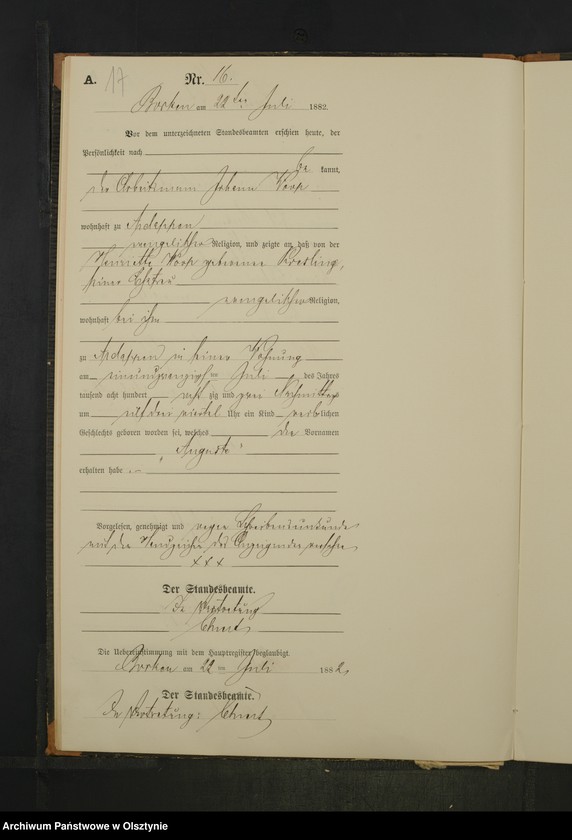 A. 17 Nr. 16.
Borken am 22ten Juli 1882.
Vor dem unterzeichneten Standesbeamten erschien heute, der
Persönlichkeit nach
be kannt,
der Arbeitsmann Johann
wohnhaft zu
evangelischer Religion, und zeigte an, daß von der
Henriette geborenen
seiner Ehefrau
evangelischer Religion,
wohnhaft bei ihm
zu in seiner Wohnung
am einundzwanzigsten Juli des Jahres
tausend acht hundert acht zig und zwei Nachmittags
um drei viertel Uhr ein Kind weiblichen
Geschlechts geboren worden sei, welches die Vornamen
„Auguste"
erhalten habe
Vorgelesen, genehmigt und wegen Schreibensunkunde
mit den Handzeichen des Anzeigenden versehen
x x x
Der Standesbeamte.
In Vertretung
Die Uebereinstimmung mit dem Hauptregister beglaubigt.
Borken am 22 ten Juli 1882.
Der Standesbeamte.
In Vertretung:
Archiwum Państwowe w Olsztynie